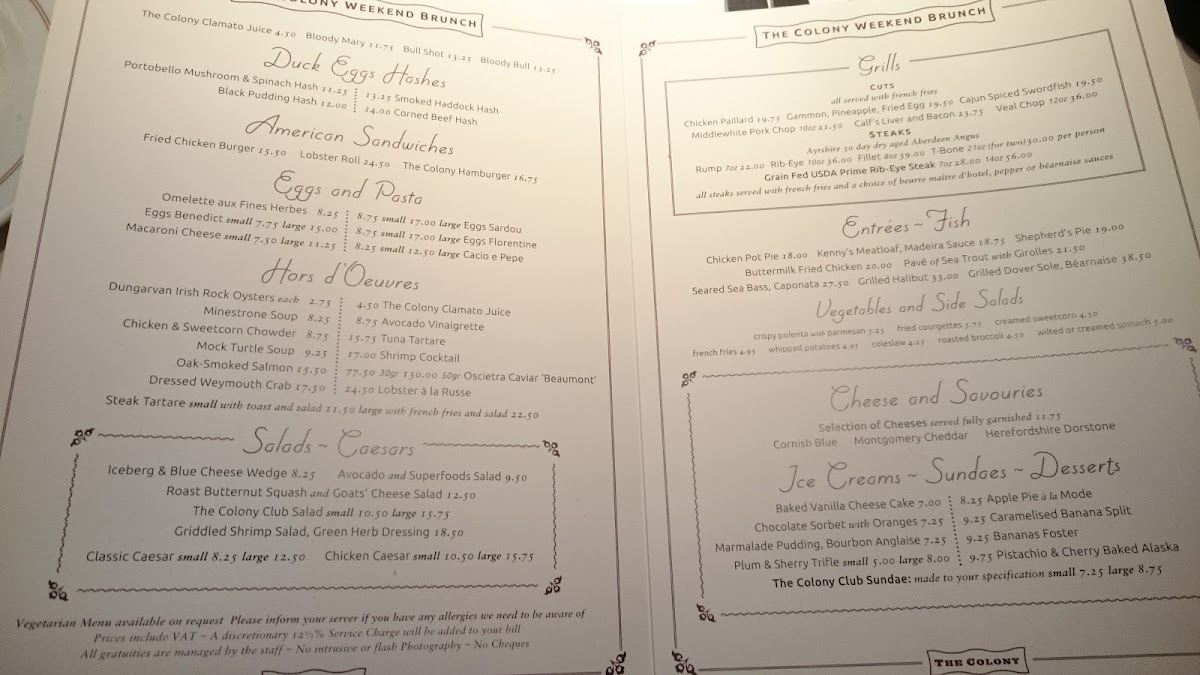 COLONY WEEKEND BRUNCH
The Colony Clamato Juice 4.50 Bloody Mary 11.75 Bull Shot 13.25 Bloody Bull 13.25
Duck Eggs Hashes
Portobello Mushroom & Spinach Hash 11.25 13.25 Smoked Haddock Hash
Black Pudding Hash 12.00 14.00 Corned Beef Hash
American Sandwiches
Fried Chicken Burger 15.50 Lobster Roll 24.50 The Colony Hamburger 16.75
Eggs and Pasta
Omelette aux Fines Herbes 8.25 8.75 small 17.00 large Eggs Sardou
Eggs Benedict small 7.75 large 15.00 8.75 small 17.00 large Eggs Florentine
Macaroni Cheese small 7.50 large 11.25 8.25 small 12.50 large Cacio e Pepe
Hors d'Oeuvres
Dungarvan Irish Rock Oysters each 2.75 4.50 The Colony Clamato Juice
Minestrone Soup 8.25 8.75 Avocado Vinaigrette
Chicken & Sweetcorn Chowder 8.75 15.75 Tuna Tartare
Mock Turtle Soup 9.25 17.00 Shrimp Cocktail
Oak-Smoked Salmon 15.50 77.50 30gr 130.00 50gr Oscietra Caviar 'Beaumont'
Dressed Weymouth Crab 17.50 24.50 Lobster à la Russe
Steak Tartare small with toast and salad 11.50 large with french fries and salad 22.50
Salads ~ Caesars
Iceberg & Blue Cheese Wedge 8.25 Avocado and Superfoods Salad 9.50
Roast Butternut Squash and Goats' Cheese Salad 12.50
The Colony Club Salad small 10.50 large 15.75
Griddled Shrimp Salad, Green Herb Dressing 18.50
Classic Caesar small 8.25 large 12.50 Chicken Caesar small 10.50 large 15.75
Vegetarian Menu available on request Please inform your server if you have any allergies we need to be aware of
Prices include VAT ~ A discretionary 12½% Service Charge will be added to your bill
All gratuities are managed by the staff ~ No intrusive or flash Photography ~ No Cheques
THE COLONY WEEKEND BRUNCH
Grills
CUTS
all served with french fries
Chicken Paillard 19.75 Gammon, Pineapple, Fried Egg 19.50 Cajun Spiced Swordfish 19.50
Middlewhite Pork Chop 10oz 21.50 Calf's Liver and Bacon 23.75 Veal Chop 12oz 36.00
STEAKS
Ayrshire 30 day dry aged Aberdeen Angus
Rump 7oz 22.00 Rib-Eye 10oz 36.00 Fillet 8oz 39.00 T-Bone 21oz (for two) 30.00 per person
Grain Fed USDA Prime Rib-Eye Steak 7oz 28.00 14oz 56.00
all steaks served with french fries and a choice of beurre maître d'hotel, pepper or béarnaise sauces
Entrées ~ Fish
Chicken Pot Pie 18.00 Kenny's Meatloaf, Madeira Sauce 18.75 Shepherd's Pie 19.00
Buttermilk Fried Chicken 20.00 Pavé of Sea Trout with Girolles 21.50
Seared Sea Bass, Caponata 27.50 Grilled Halibut 33.00 Grilled Dover Sole, Béarnaise 38.50
Vegetables and Side Salads
crispy polenta with parmesan 5.25 fried courgettes 5.75 creamed sweetcorn 4.50
french fries 4.95 whipped potatoes 4.95 coleslaw 4.25 roasted broccoli 4.50 wilted or creamed spinach 5.00
Cheese and Savouries
Selection of Cheeses served fully garnished 11.75
Cornish Blue Montgomery Cheddar Herefordshire Dorstone
Ice Creams ~ Sundaes ~ Desserts
Baked Vanilla Cheese Cake 7.00 8.25 Apple Pie à la Mode
Chocolate Sorbet with Oranges 7.25 9.25 Caramelised Banana Split
Marmalade Pudding, Bourbon Anglaise 7.25 9.25 Bananas Foster
Plum & Sherry Trifle small 5.00 large 8.00 9.75 Pistachio & Cherry Baked Alaska
The Colony Club Sundae: made to your specification small 7.25 large 8.75
THE COLONY